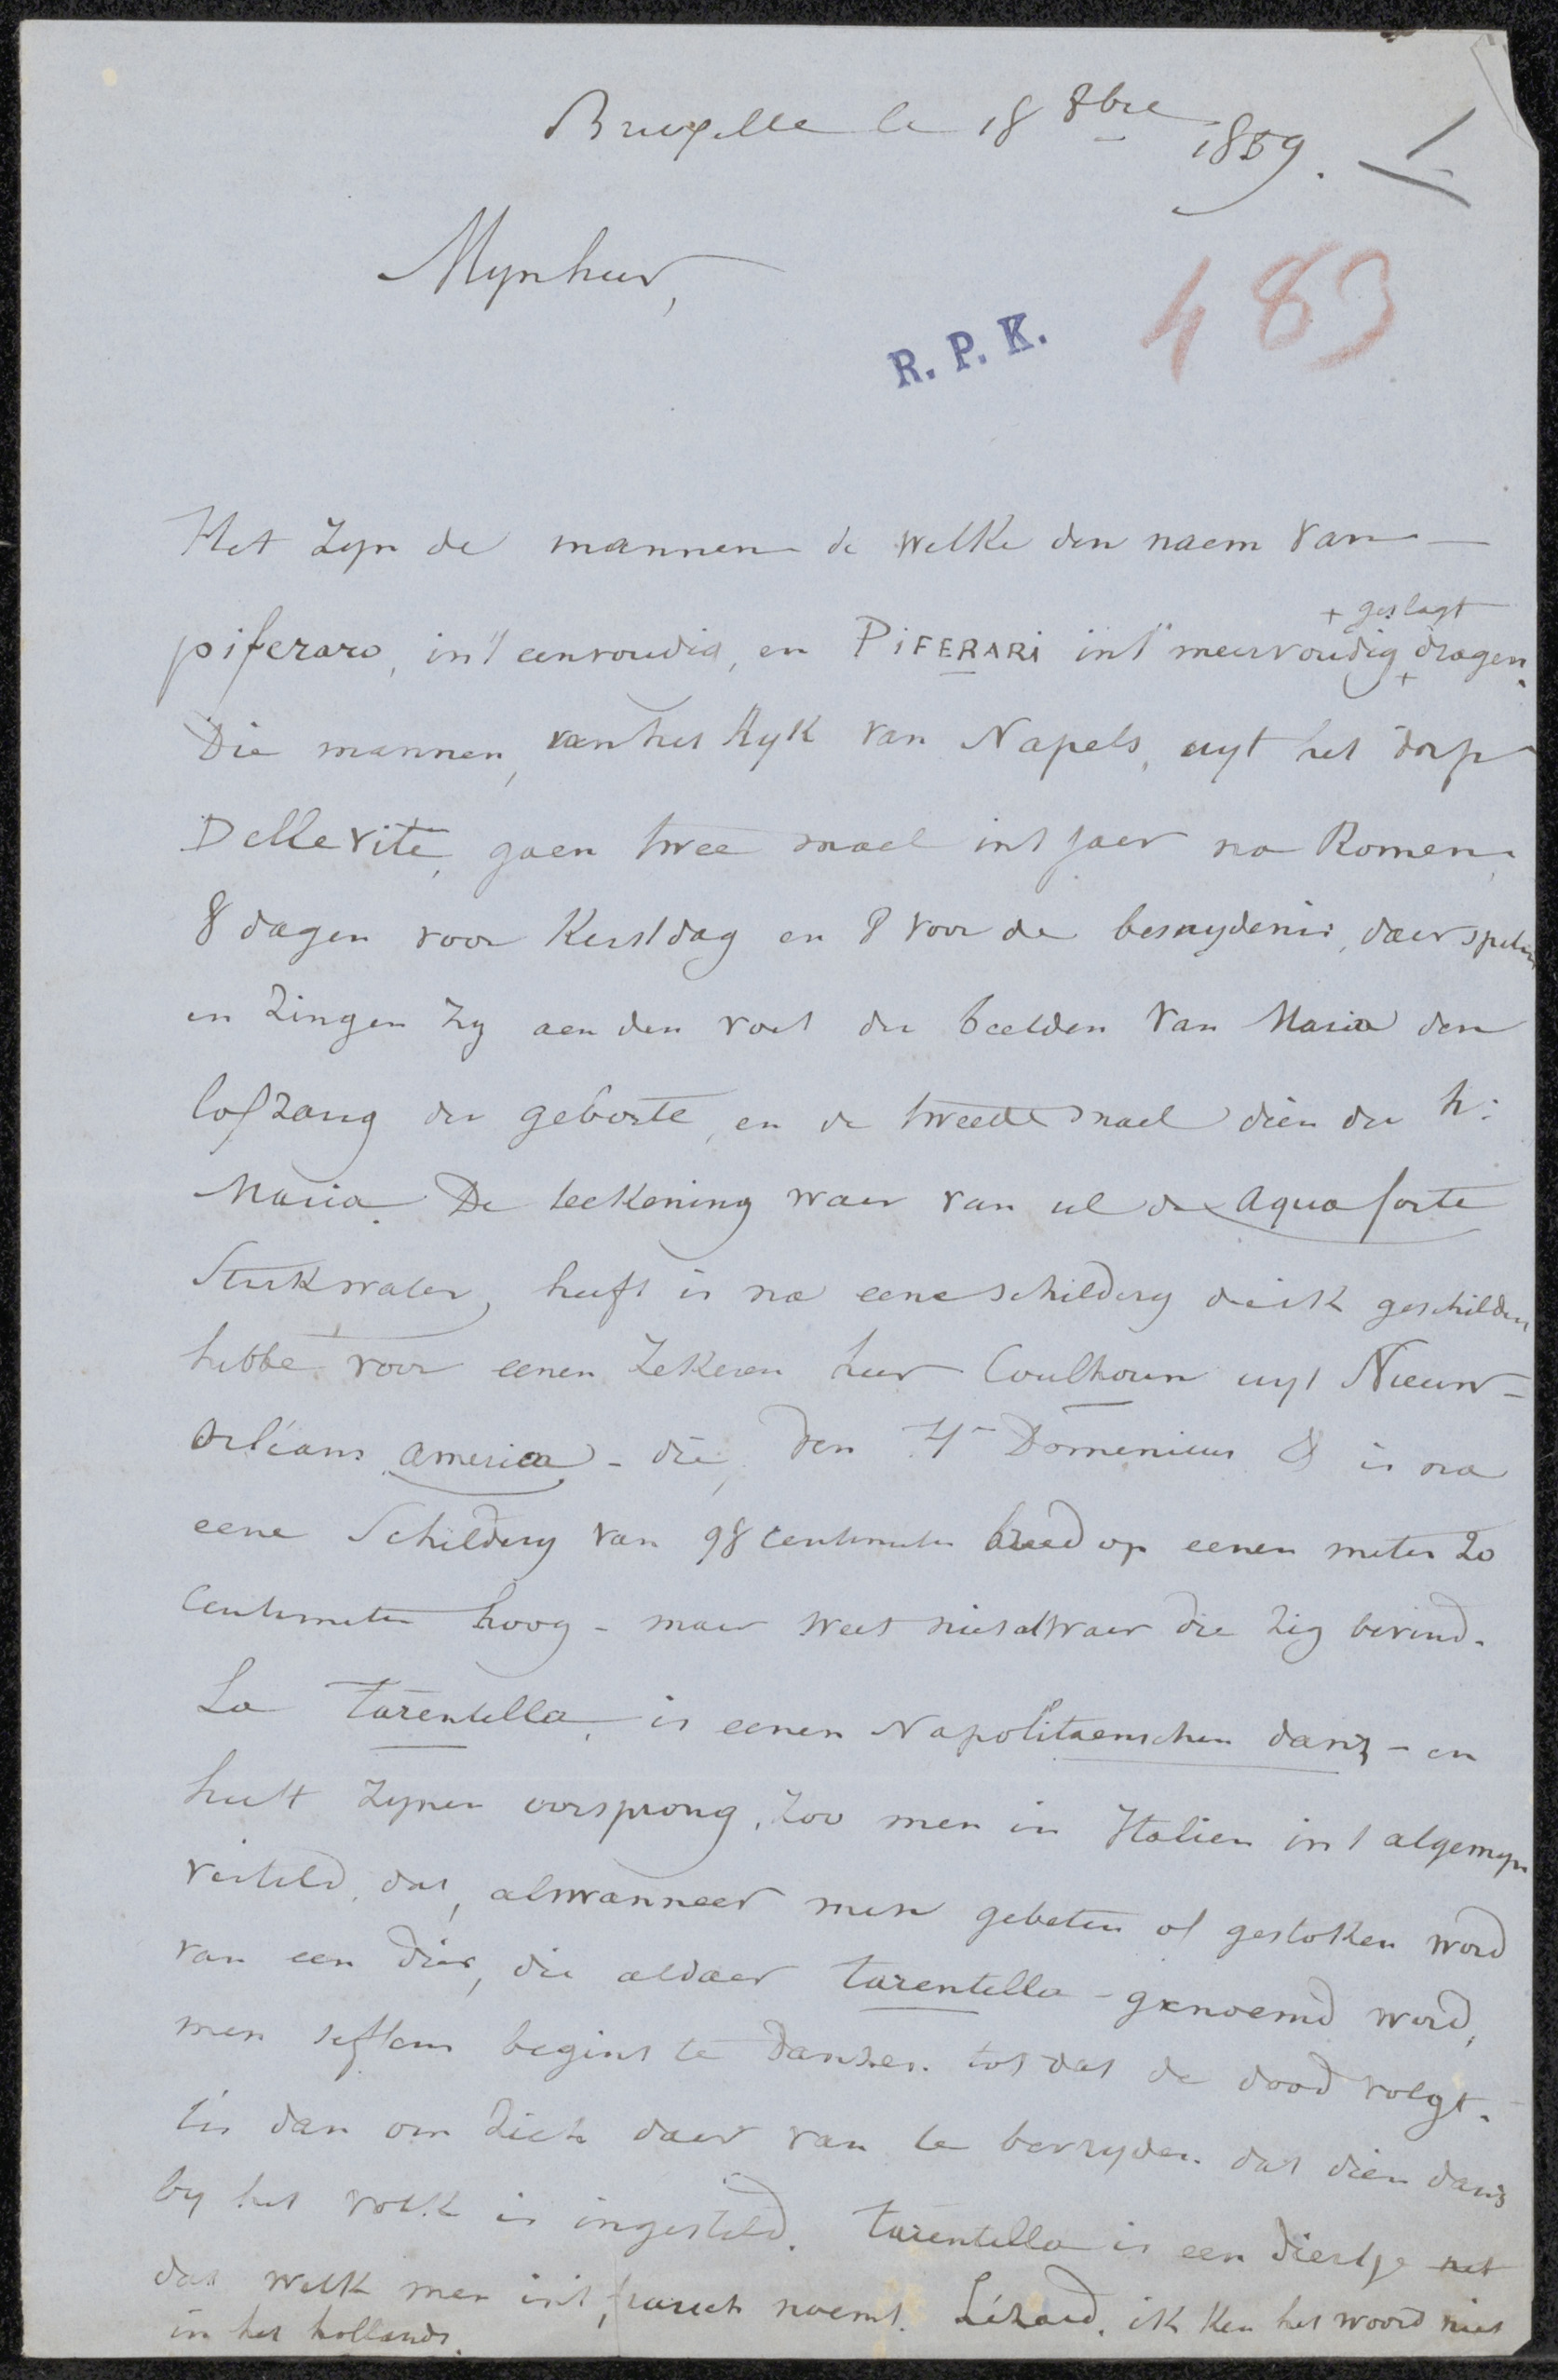 Bruxelle le 18 8bre 1859.
Mynheer,
R. P. K.
483
Het zyn de mannen de welke den naem van
+ geslagt
piferaro, in't eenvoudig, en PIFERARI in't meervoudig + dragen.
Die mannen, van het Ryk van Napels, uyt het dorp
Delle Vite, gaen twee mael int jaer na Romen,
8 dagen voor Kerstdag en 8 voor de besnydenis, daer spelen
en zingen zy aen den voet der beelden van Maria den
lofzang der geborte, en de tweede mael dien der h:
Maria. De teekening waer van ul de aqua forte
Sterkwater, heeft is na eene schildery die ik geschilderd
hebbe voor eenen zekeren heer Coulhoun uyt Nieuw-
Orléans America - die, den H. Domenicus & is na
eene Schildery van 98 centimeter breed op eenen meter 20
Centimeter hoog - maer weet niet alwaer die zig bevind.
La Tarentella, is eenen Napolitaenschen dans - en
heeft zynen oorsprong, zoo men in Italien int algemeyn
verteld, dat, alswanneer men gebeten of gestoken word
van een dier, die aldaer tarentella - genoemd word,
men seffens begint te dansen tot dat de dood volgt.
tis dan om zich daer van te bevryden dat dien dans
by het volk is ingesteld. Tarentella is een diertje net
dat welk men int fransch noemt. Lézard, ik ken het woord niet
in het hollands.